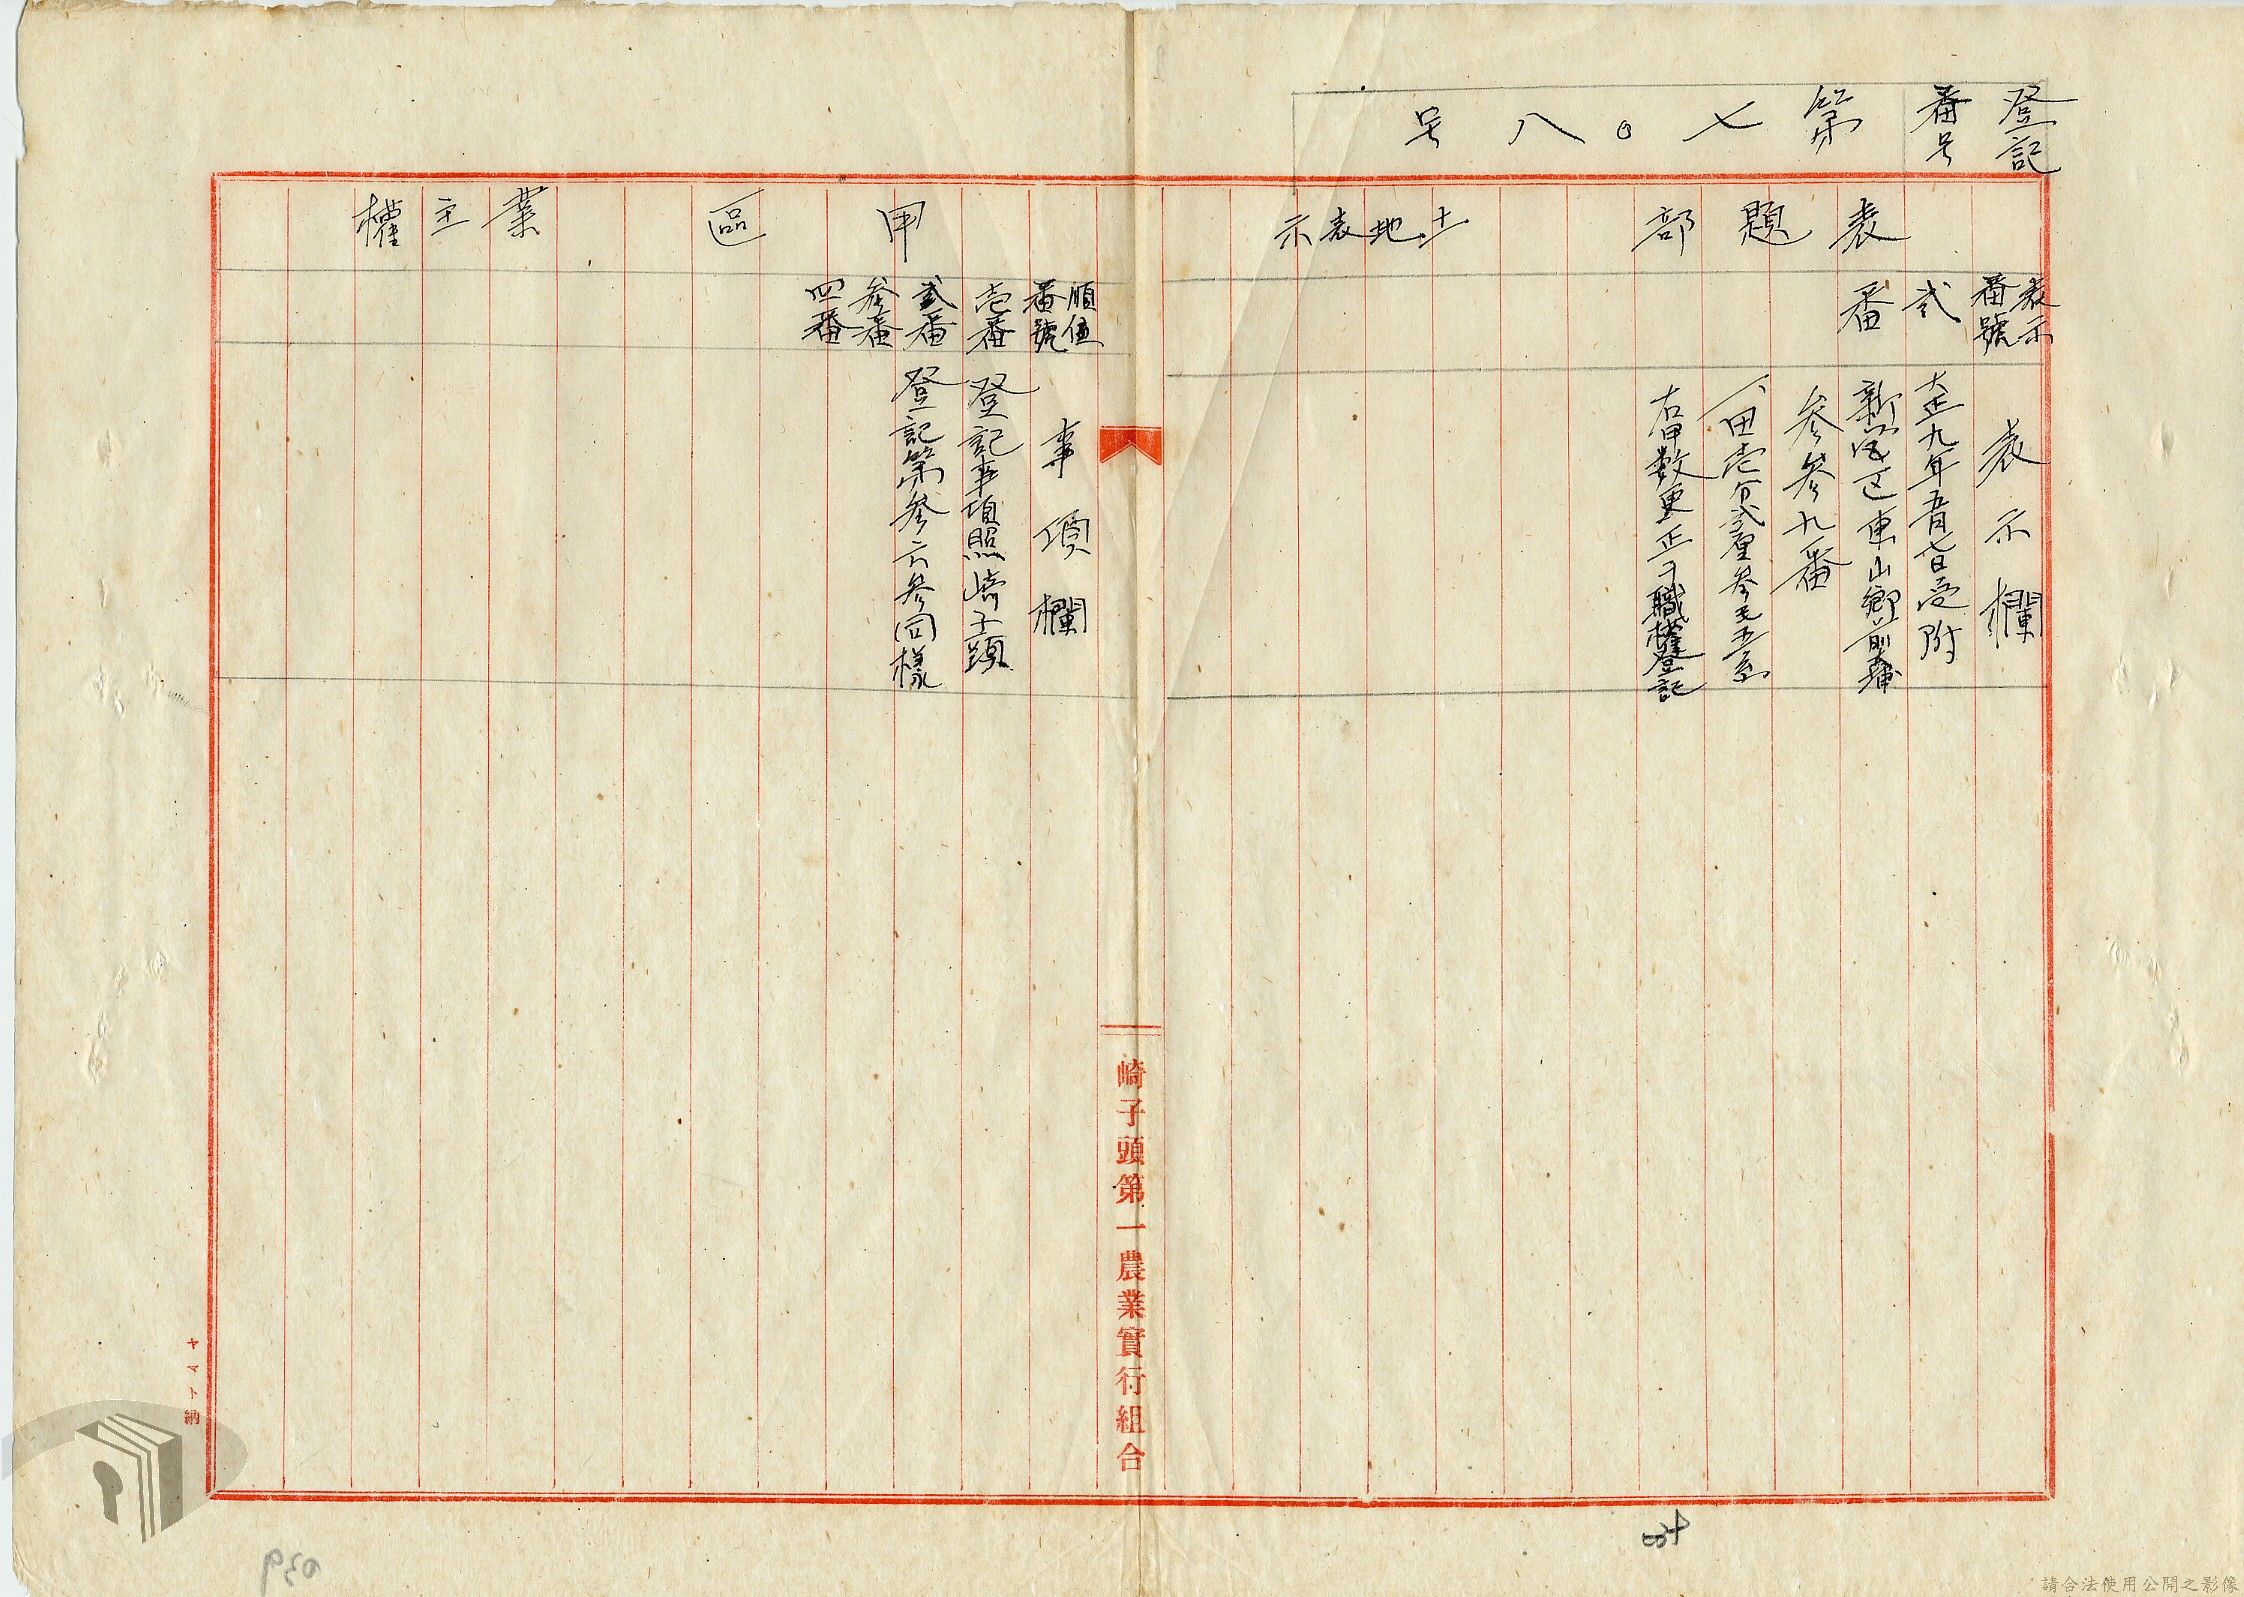 登記
番号
第七〇八号
表題部
土地表示
表示
番號
弐
番
表示欄
大正九年五月七日受附
新営区東山鄉前大埔
参参九番
一、田壱分弐厘参毛五糸
右甲数更正ヲ職權登記
甲區
業主權
順位
番號
壱番
弐番
参番
四番
事項欄
登記事項照崎子頭
登記第参六参同様
崎子頭第一農業實行組合
ヤマト納
請合法使用公開之影像